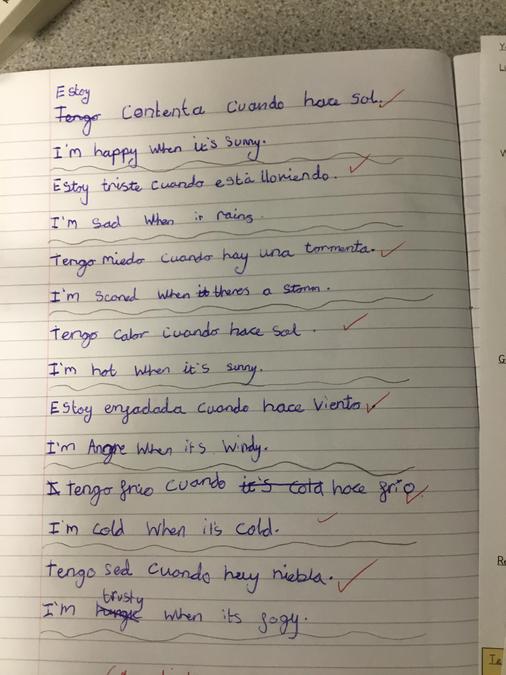 Estoy
Tengo Contenta Cuando hace Sol.
I'm happy when it's Sunny.
Estoy triste cuando está lloviendo.
I'm Sad when it rains
Tengo Miedo Cuando hay una tormenta.
I'm Scared when it theres a Storm.
Tengo Calor cuando hace Sol.
I'm hot when it's sunny.
Estoy enjadada Cuando hace Viento
I'm Angre When its Windy.
I tengo frio cuando it's cold hace frío.
I'm Cold When its Cold.
tengo sed Cuando hay niebla.
trusty
I'm when its fogy.